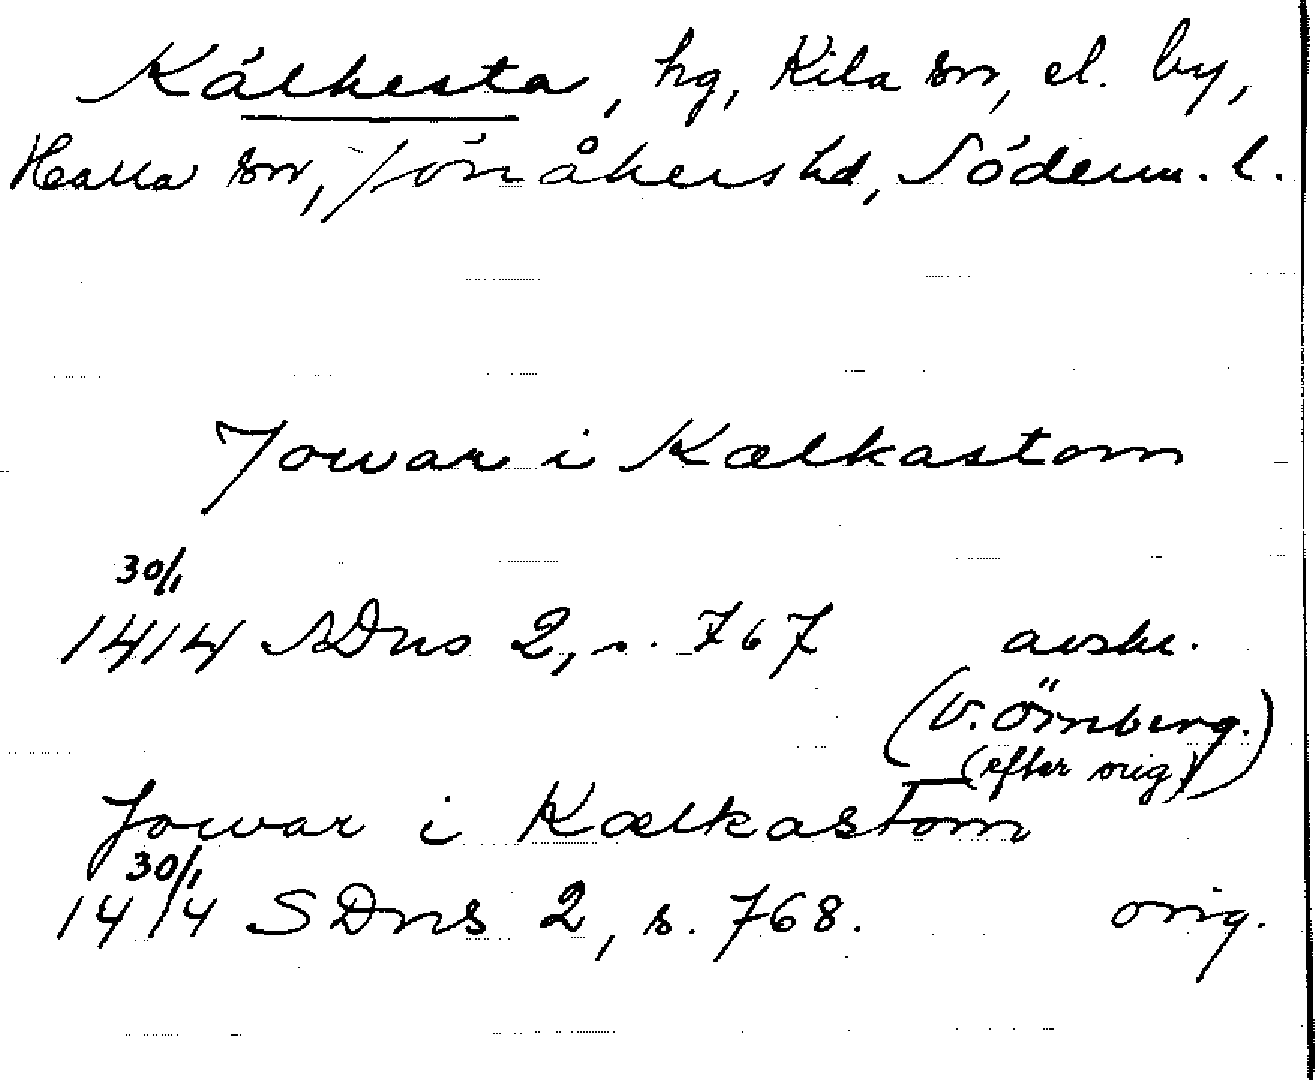 Kälkesta, hg, Kila sn, el. by,
Halla sn, Jönåkers hd, Söderm. l.
Jowar i Kælkastom
30/1
1414 SDns 2, s. 767 avskr.
(V. Örnberg.)
(efter orig)
Jowar i Kælkastom
30/1
1414 SDns 2, s. 768. orig.